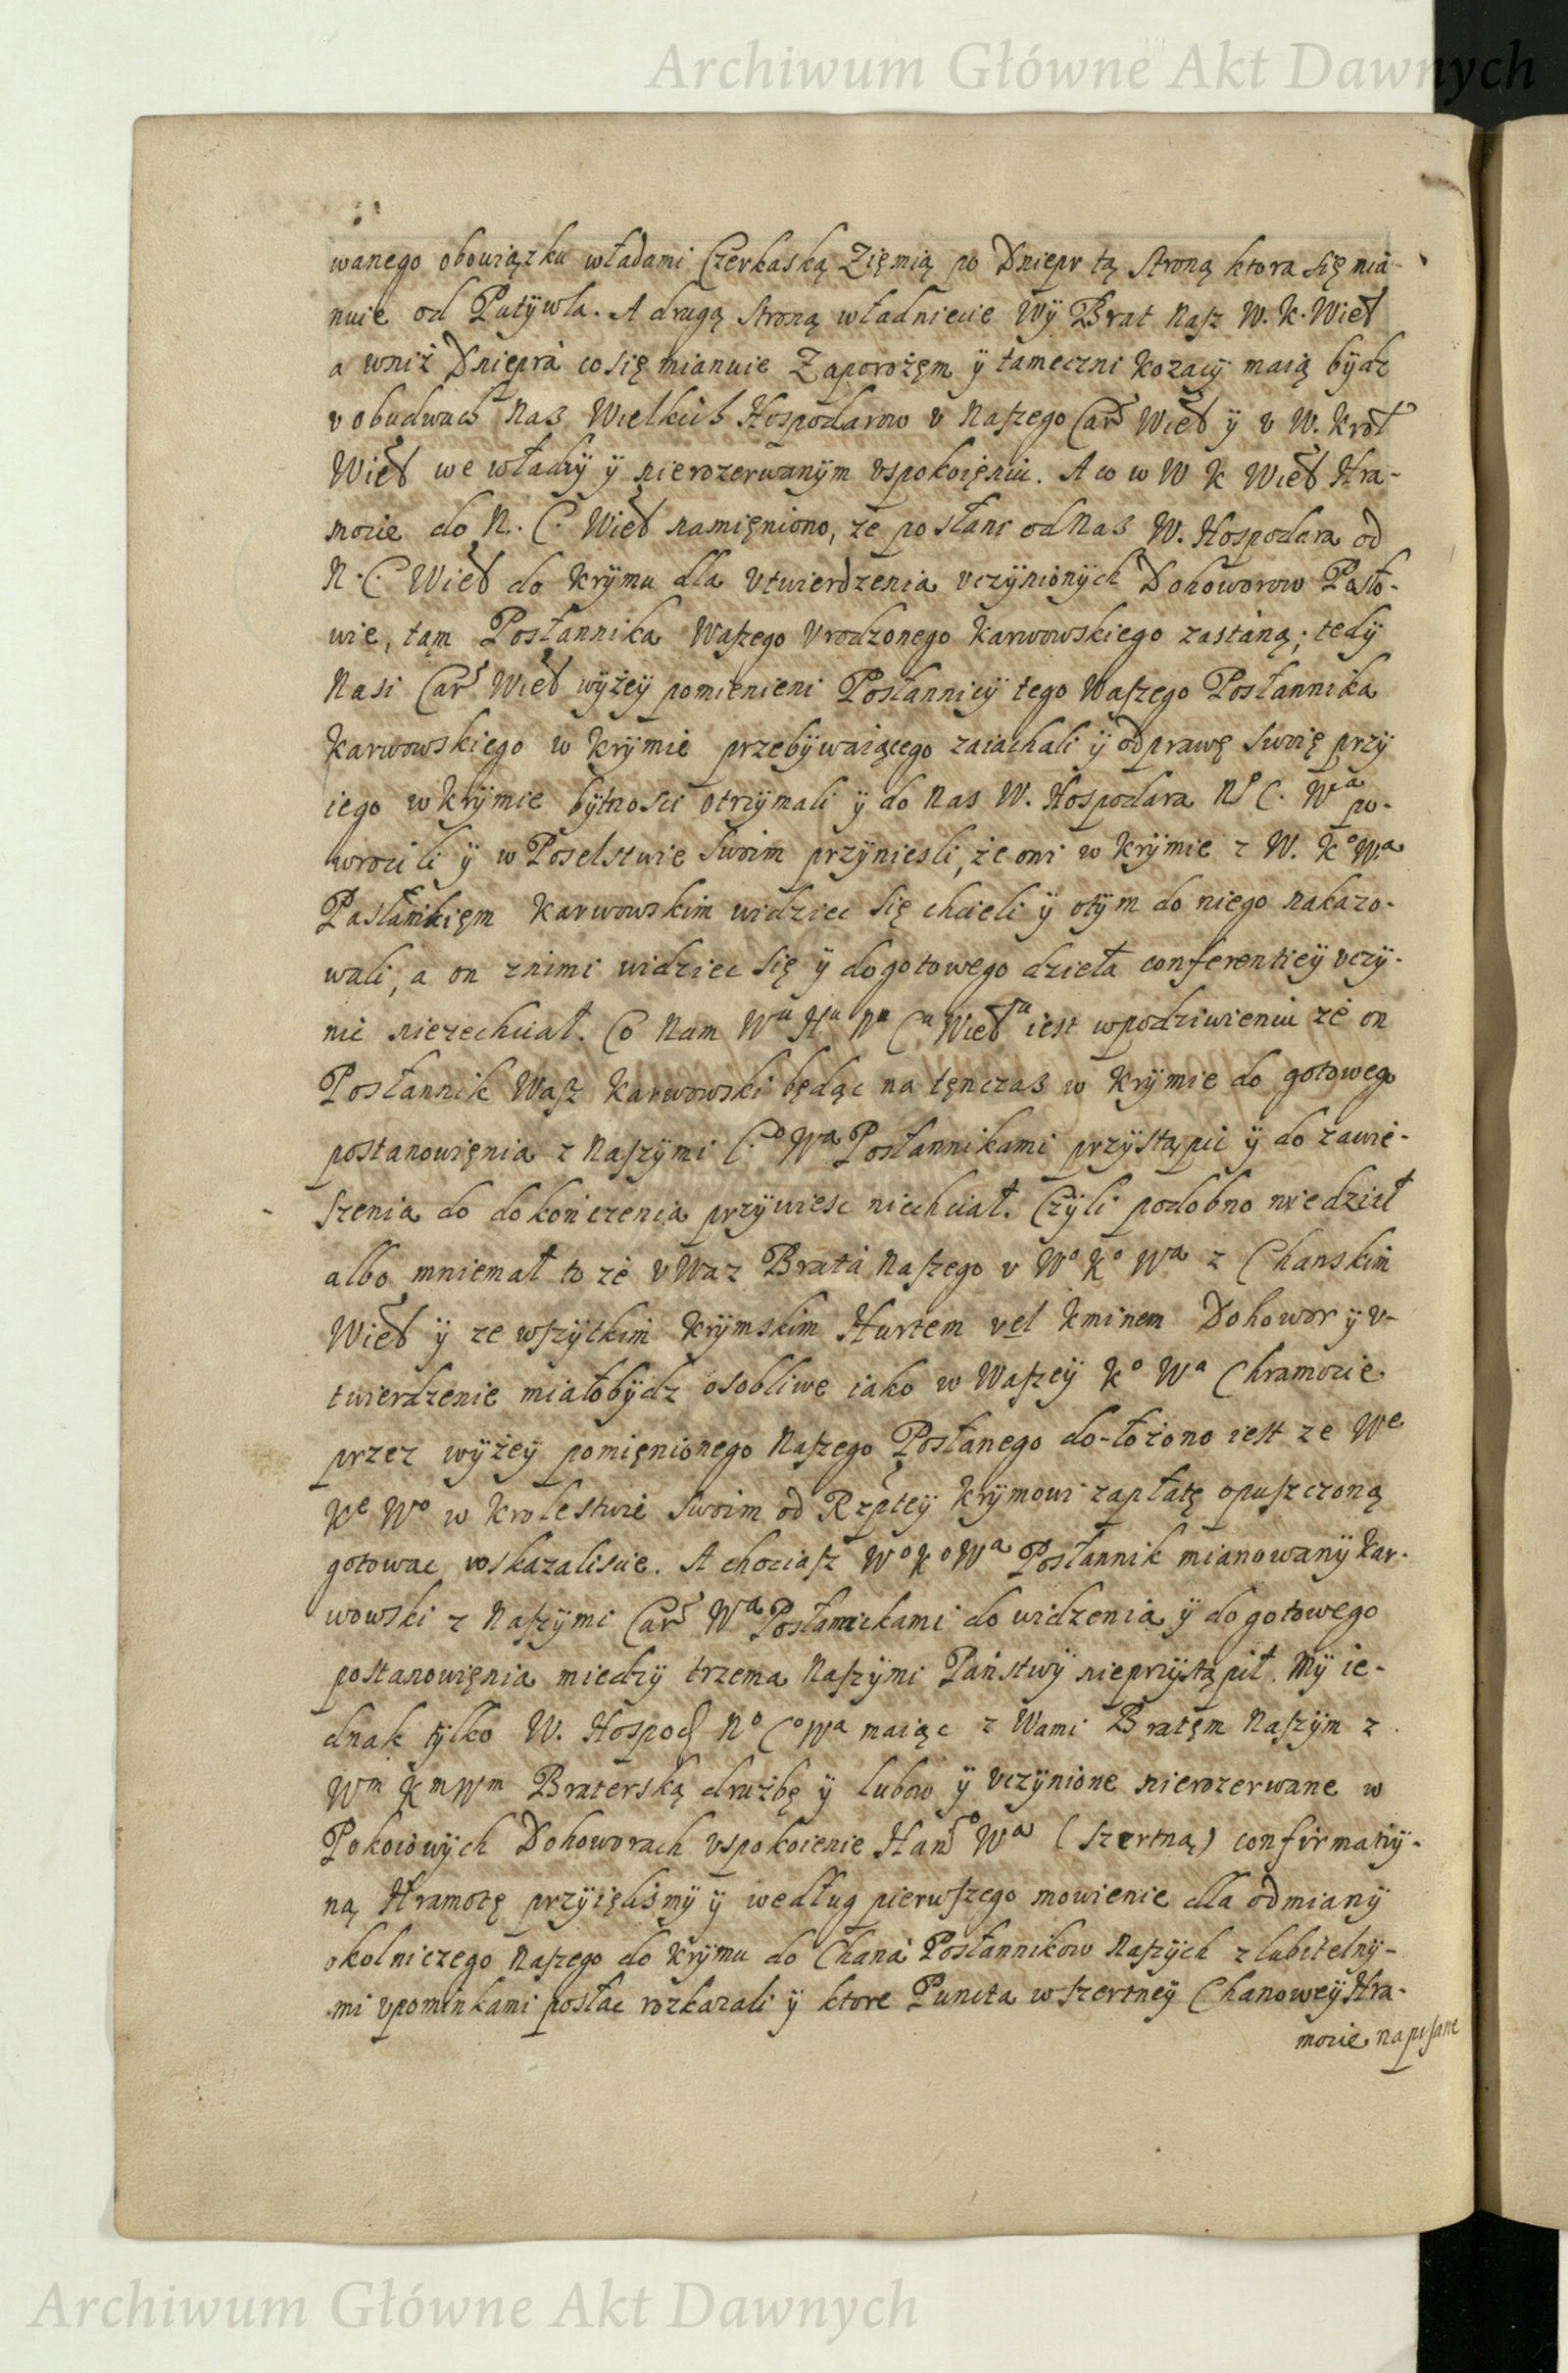 Archiwum Główne Akt Dawnych
wanego obowiązku władami Czerkaską Zięmią po Dniepr tą stroną ktora się mia-
nuie od Putÿwla. A drugą stroną władniecie Wÿ Brat Nasz W. K. Wieł
a wniż Dniepra co się mianuie Zaporożęm ÿ tameczni Kozacÿ maią bÿdz
v obudwuch Nas Wielkich Hospodarow v Naszego Car Wieł ÿ v W. Krol
Wieł we władzÿ ÿ nierozerwanÿm vspokoięniu. A co w W K Wieł Hra-
mocie do N. C. Wieł namięniono, że posłani od Nas W. Hospodara od
N. C Wieł do Krÿmu dla Vtwierdzenia vczÿnionÿch Dohoworow Posło-
wie, tąm Posłannika Waszego Vrodzonego Karwowskiego zastáną; tedÿ
Nasi Car Wieł wÿżeÿ pomienieni Posłannicÿ tego Waszego Posłannika
Karwowskiego w Krÿmie przebÿwaiącego zaiachali ÿ odprawę swoię przÿ
iego w Krÿmie bÿtnosci otrzÿmali ÿ do Nas W. Hospodara No C. Wa po-
wrocili ÿ w Poselstwie swoim przÿniesli, że oni w Krÿmie z W. Ko Wa
Pasłanikięm Karwowskim widziec się chcieli ÿ otÿm do niego nakazo-
wali, a on znimi widziec się ÿ do gotowego dzieła conferenticÿ vczÿ-
nic niezechciał. Co Nam Wu Hu Nu Cu Wiełu iest w podziwieniu że on
Posłannik Wasz Karwowski będąc na tęnczas w Krÿmie do gotowego
postanowięnia z Naszÿmi C.o Wa Posłannikami przÿstąpic ÿ do zawie-
szenia do dokończenia przÿwiesc niechciał. Czÿli podobno niedział
albo mniemał to że v Waz Brata Naszego v Wo Ko Wa z Chanskim
Wieł ÿ ze wszÿtkim Krÿmskim Hurtem vel Kminem Dohowor ÿ v-
twierdzenie miałobÿdz osobliwe iako w Waszeÿ Ko Wa Chramocie
przez wÿżeÿ pomięnionego Naszego Posłanego do-łożono iest że We
Ke Wo w Krolestwie swoim od Rzpłteÿ Krÿmowi zapłatę opuszczoną
gotowac roskazaliscie. A chociasz Wo Ko Wa Posłannik mianowanÿ Kar-
wowski z Naszÿmi Car Wa Posłannickami do widzenia ÿ do gotowego
postanowięnia miedzÿ trzema Naszÿmi Państwÿ nieprzÿstąpił. Mÿ ie-
dnak tÿlko W. Hospod No Co Wa maiąc z Wami Bratęm Naszÿm z
Wm Km Wm Braterską drużbę ÿ lubow ÿ vczÿnione nierozerwane w
Pokoiowÿch Dohoworach vspokoienie Hano Wa (szertną) confirmatiÿ-
ną Hramotę przÿięlismÿ ÿ według pierwszego mowienie dla odmianÿ
okolniczego Naszego do Krÿmu do Chana Posłannikow Naszÿch z lubitelnÿ-
mi vpominkami posłac rozkazali ÿ ktore Puncta w szertneÿ Chanoweÿ Hra-
mocie napisane
Archiwum Główne Akt Dawnych